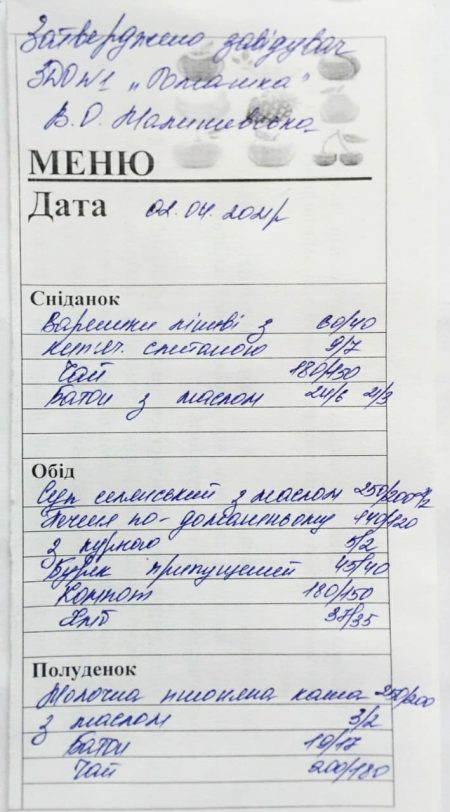 Затверджено завідувач
ЗДО №1 „Ромашка"
В.О. Малишевська
МЕНЮ
Дата 02.04.2021р
Сніданок
Вареники ліниві з 60/40
сметаною 9/7
Чай 180/150
Батон з маслом 24/6 21/3
Обід
Суп селянський з маслом 250/200
Печеня по-домашньому 140/120
з куркою 5/2
Буряк припущений 45/40
Компот 180/150
Хліб 37/35
Полуденок
Молочна пшоняна каша 250/200
з маслом 3/2
Батон 19/17
Чай 200/180